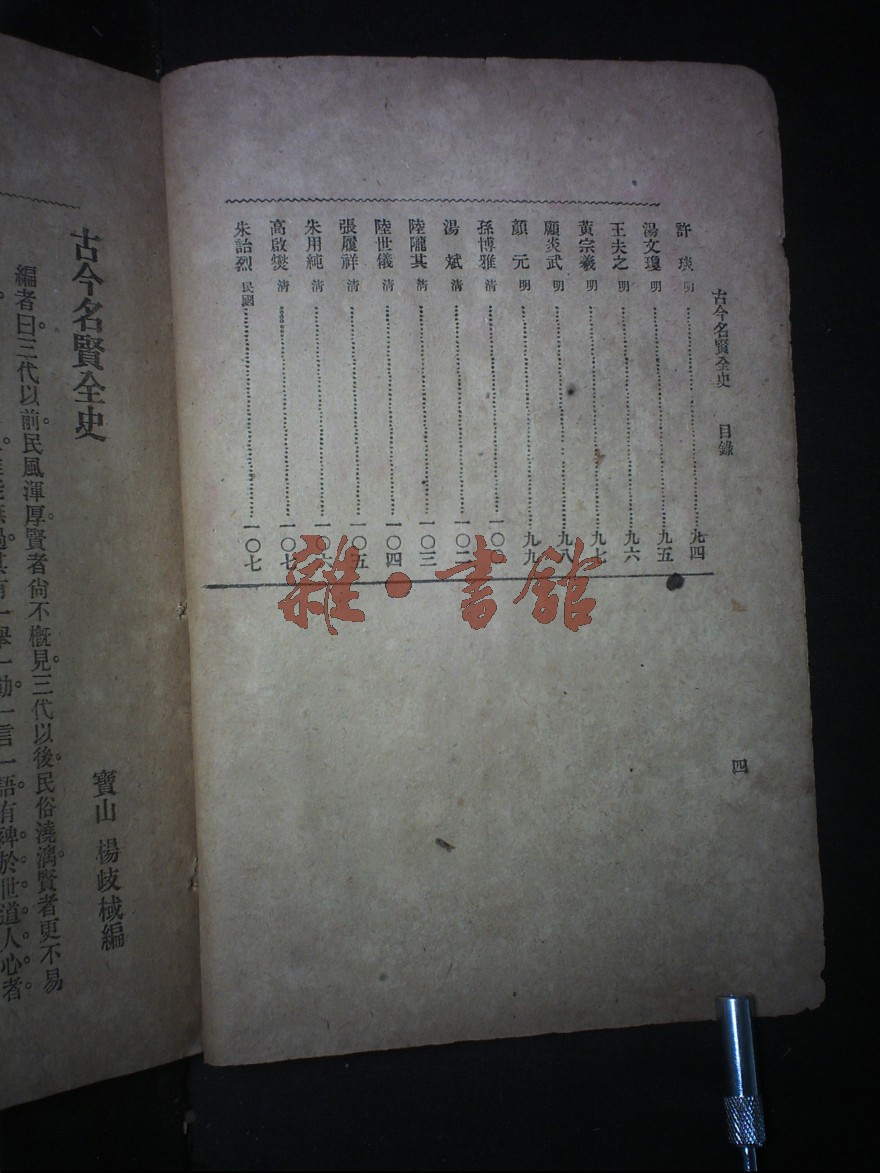 古今名賢全史 目錄 四
許琰 明 九四
湯文瓊 明 九五
王夫之 明 九六
黃宗羲 明 九七
顧炎武 明 九八
顏元 明 九九
孫博雅 清 一〇
湯斌 清 一〇二
陸隴其 清 一〇三
陸世儀 清 一〇四
張履祥 清 一〇五
朱用純 清 一〇六
高啟燮 清 一〇七
朱詒烈 民國 一〇七
雜·書館
古今名賢全史
寶山 楊歧棫編
編者曰。三代以前。民風渾厚。賢者尙不槪見。三代以後。民俗澆漓。賢者更不易
過。其有一舉一動。一言一語。有裨於世道人心者。